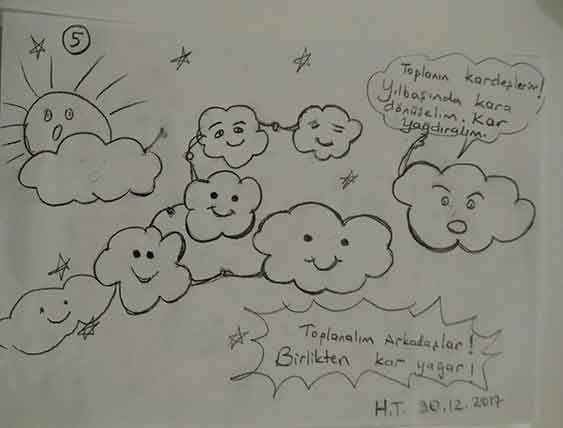 5
Toplanın kardeşlerim!
Yılbaşında kara
dönüşelim. Kar
yağdıralım.
Toplanalım Arkadaşlar!
Birlikten kar yağar!
H.T. 30.12.2017